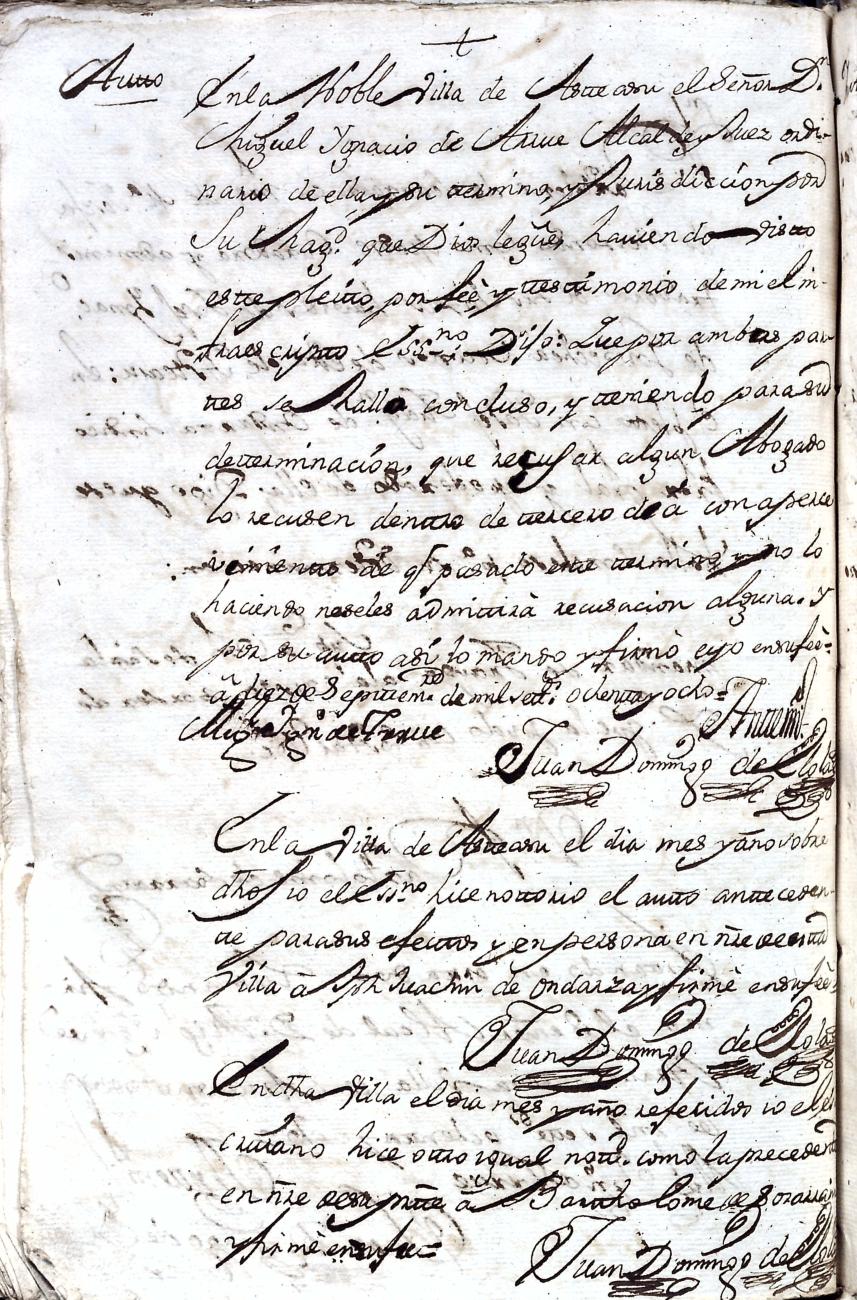 +
Autto
En la Noble Villa de Asteasu el Señor Dn.
Miguel Ygnacio de Arrue Alcalde y Juez ordi-
nario de ella, y su termino, y Jurisdiccion por
Su Magd. que Dios legue, haviendo visto
este pleitto, por feè, y testimonio de mi el in-
fraescripto Essno. Dijo: Que por ambas par-
ttes se halla concluso, y teniendo para su
determinación, que recusar algun Abogado
lo recusen dentro de tercero dia con aperce
vimiento de q.e pasado este termino, y no lo
haciendo no seles admittirà recusacion alguna. Y
por su autto asi lo mando y firmò e yo en su feè-
à diez de Septtiemre. de mil settos. ochenta y ocho=
Migl. Ygno. de Arrue
Antemi-
Juan Domingo de
En la Villa de Asteasu el dia mes y año sobre
dhos io el Essno. hice nottorio el autto anteceden-
te para sus efectos y en persona en nre de esttad
Villa à Jph Juachin de Ondarza y firmè en su feè
Juan Domingo de
En dha Villa el dia mes y año referidos io el es
crivano hice otro igual nottd. como la precedente
en nre de su partte à Bartholome de Soraiz
y firmè en su fee=
Juan Domingo de